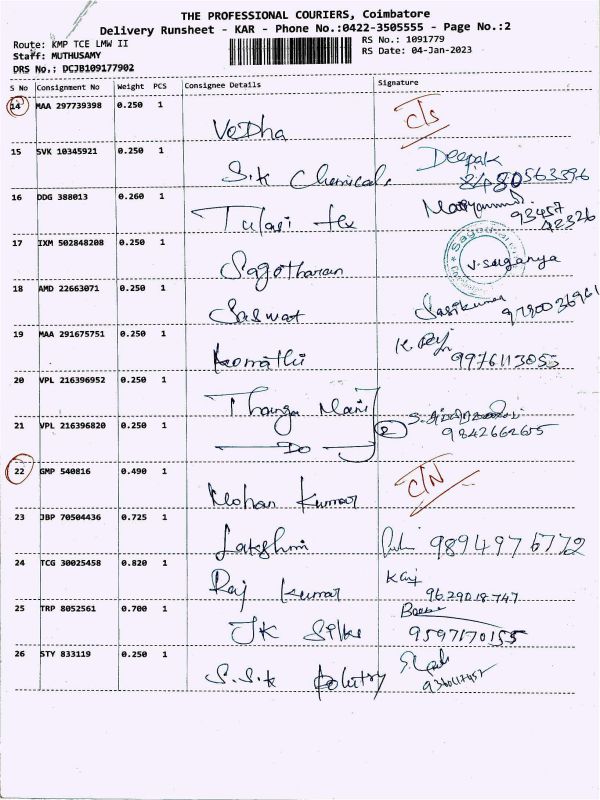 THE PROFESSIONAL COURIERS, Coimbatore
Delivery Runsheet - KAR - Phone No.:0422-3505555 - Page No.:2
Route: KMP TCE LMW II
RS No.: 1091779
Staff: MUTHUSAMY
RS Date: 04-Jan-2023
DRS No.: DCJB109177902
S No Consignment No Weight PCS Consignee Details Signature
14 MAA 297739398 0.250 1 Vedha C/S
15 SVK 10345921 0.250 1 S.S.K Chemicals Deepak
8480563396
16 DDG 388013 0.260 1 Tulasi tex
93457
42326
17 IXM 502848208 0.250 1 Sagotharan V-Suganya
18 AMD 22663071 0.250 1 Saswat Sasikumar
9790036961
19 MAA 291675751 0.250 1 Komathi K. Raj
9976113055
20 VPL 216396952 0.250 1 Thanga Mani
21 VPL 216396820 0.250 1 Do 2
9842662655
22 GMP 540816 0.490 1 Mohan Kumar C/N
23 JBP 70504436 0.725 1 Lakshmi 9894976772
24 TCG 30025458 0.820 1 Raj Kumar
9629018747
25 TRP 8052561 0.700 1 JK Silks
9597170155
26 STY 833119 0.250 1 S.S.K Polutry